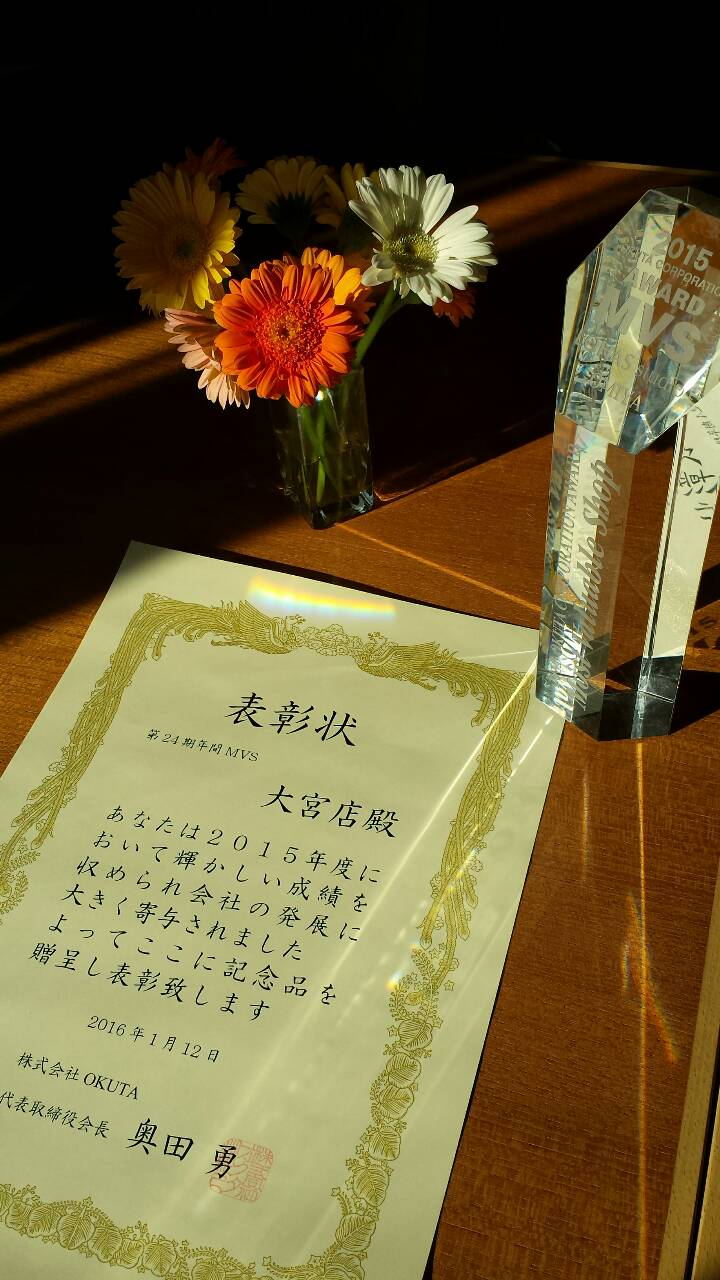 表彰状
第24期年間MVS
大宮店殿
あなたは2015年度に
おいて輝かしい成績を
収められ会社の発展に
大きく寄与されました
よってここに記念品を
贈呈し表彰致します
2016年1月12日
株式会社OKUTA
代表取締役会長 奥田 勇
2015
AWARD
MVS